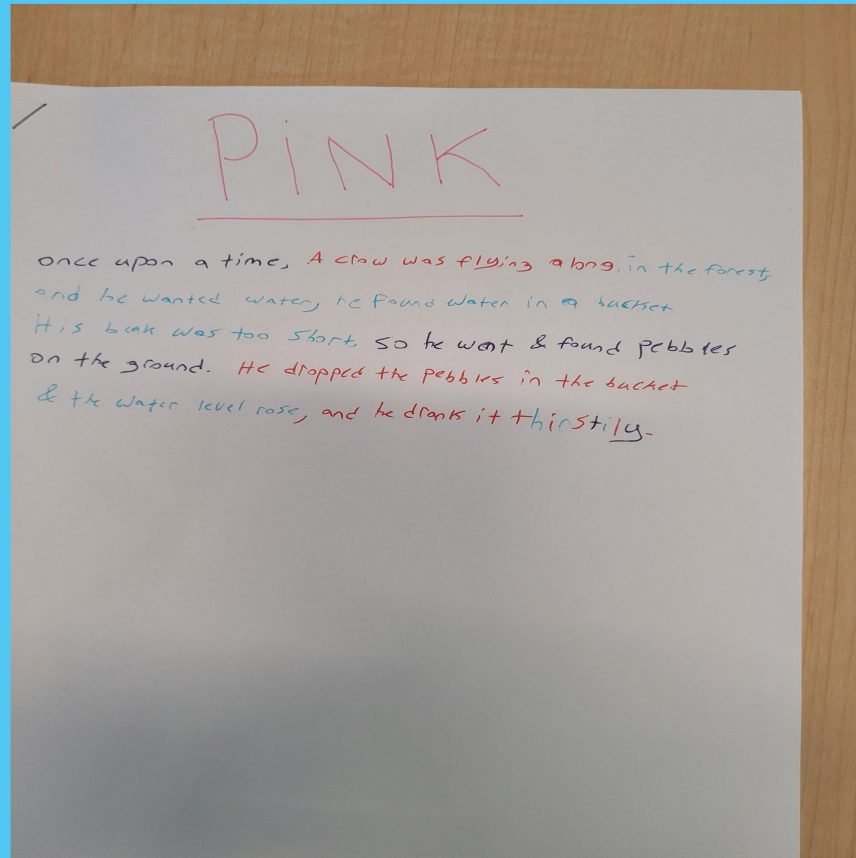 PiNK
once upon a time, A crow was flying along, in the forest,
and he wanted water, he found water in a bucket
His beak was too short, so he went & found pebbles
on the ground. He dropped the pebbles in the bucket
& the water level rose, and he drank it thirstily.